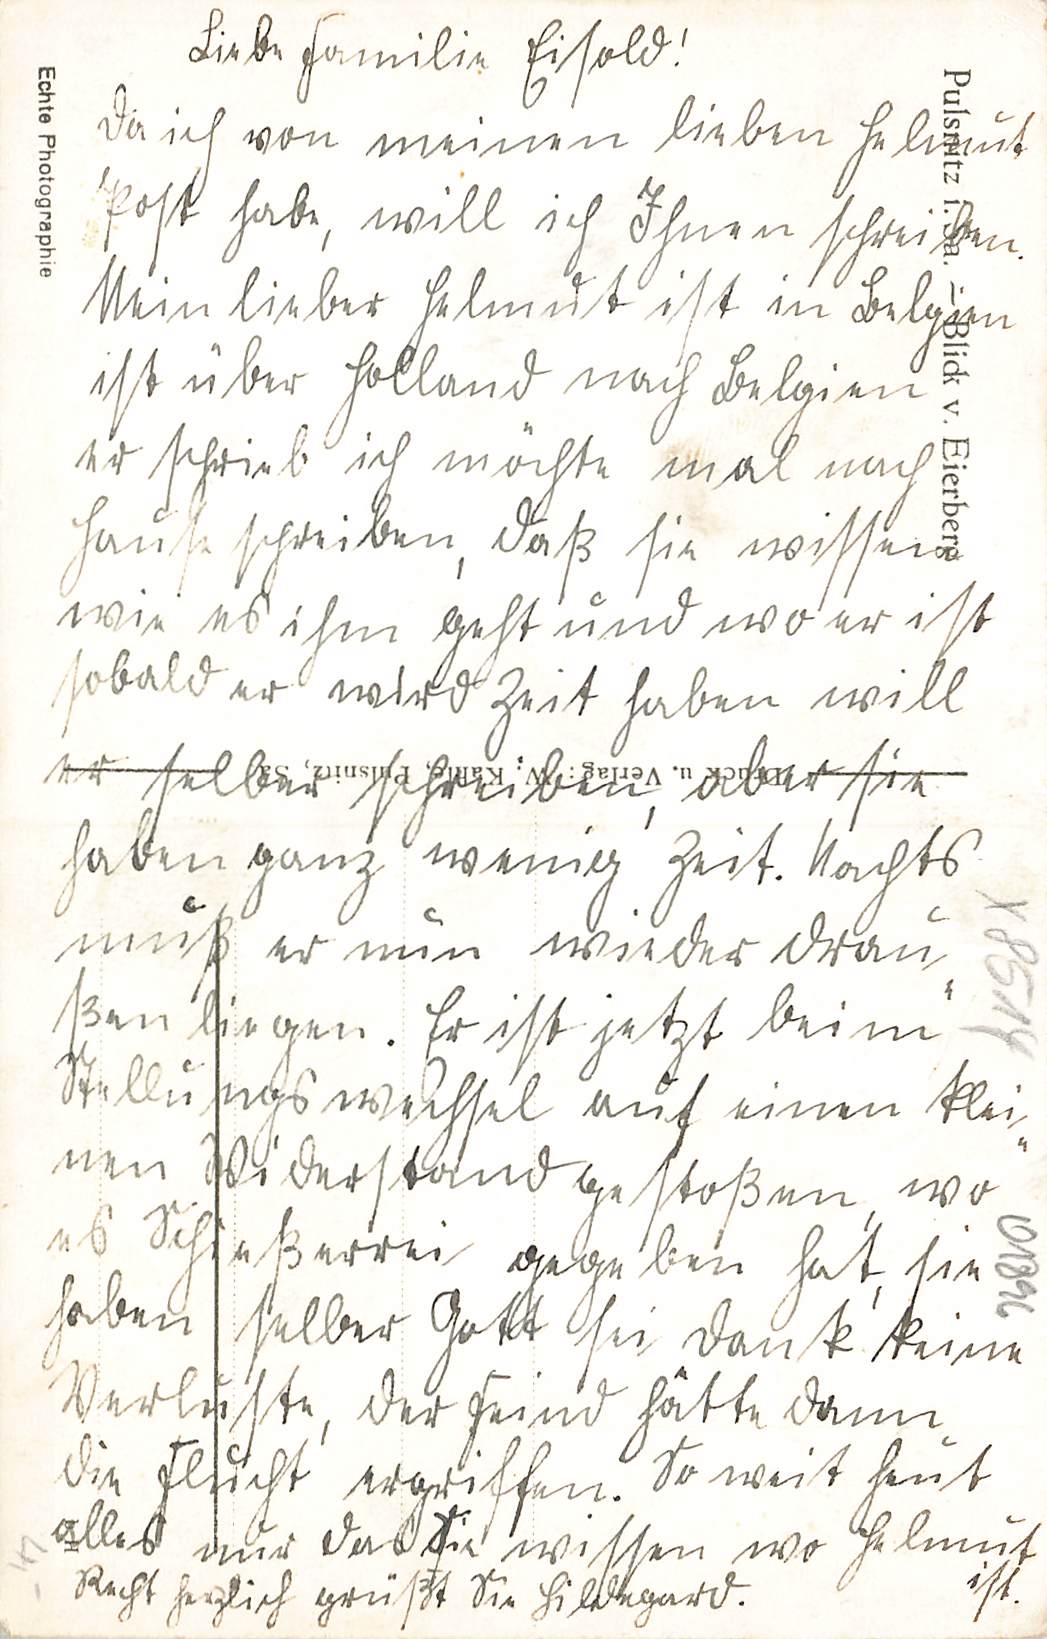 Liebe Familie Eisold!
Da ich von meinen lieben Helmut
Post habe, will ich Ihnen schreiben.
Mein lieber Helmut ist in Belgien
ist über Holland nach Belgien
er schrieb ich möchte mal nach
Hause schreiben, daß sie wissen
wie es ihm geht und wo er ist
sobald er wird Zeit haben will
er selber schreiben, aber sie
haben ganz wenig Zeit. Nachts
muß er nun wieder drau-
ßen liegen. Er ist jetzt beim
Stellungswechsel auf einen klei-
nen Widerstand gestoßen, wo
es Schießerrei gegeben hat, sie
haben selber Gott sei Dank keine
Verluste, der Feind hätte dann
die Flucht ergriffen. So weit heut
alles nur das Sie wissen wo Helmut
ist.
Recht herzlich grüßt Sie Hildegard.
Echte Photographie
Pulsnitz i. Sa. – Blick v. Eierberg
Druck u. Verlag: W. Kahle, Pulsnitz, Sa.
X 8514
01896